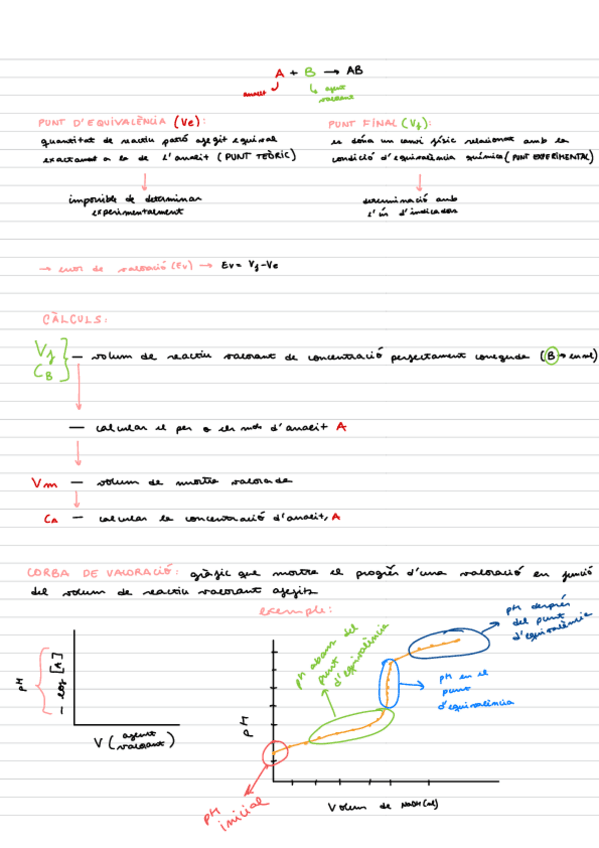 A + B → AB
analit
agent
valorant
PUNT D'EQUIVALÈNCIA (Ve):
quantitat de reactiu patró afegit equival
exactament a la de l'analit (PUNT TEÒRIC)
impossible de determinar
experimentalment
PUNT FINAL (Vf):
es dóna un canvi físic relacionat amb la
condició d'equivalència química (PUNT EXPERIMENTAL)
determinació amb
l'ús d'indicadors
→ error de valoració (Ev) → Ev = Vf - Ve
CÀLCULS:
Vf
CB
— volum de reactiu valorant de concentració perfectament coneguda (B →
— calcular el pes o els mols d'analit A
Vm — volum de mostra valorada
CA — calcular la concentració d'analit, A
CORBA DE VALORACIÓ: gràfic que mostra el progrés d'una valoració en funció
del volum de reactiu valorant afegit
exemple:
pH
- log [A]
V (agent
valorant)
pH
pH abans del
punt
d'equivalència
pH en el
punt
d'equivalència
pH després
del punt
d'equivalència
pH
inicial
Volum de NaOH (ml)